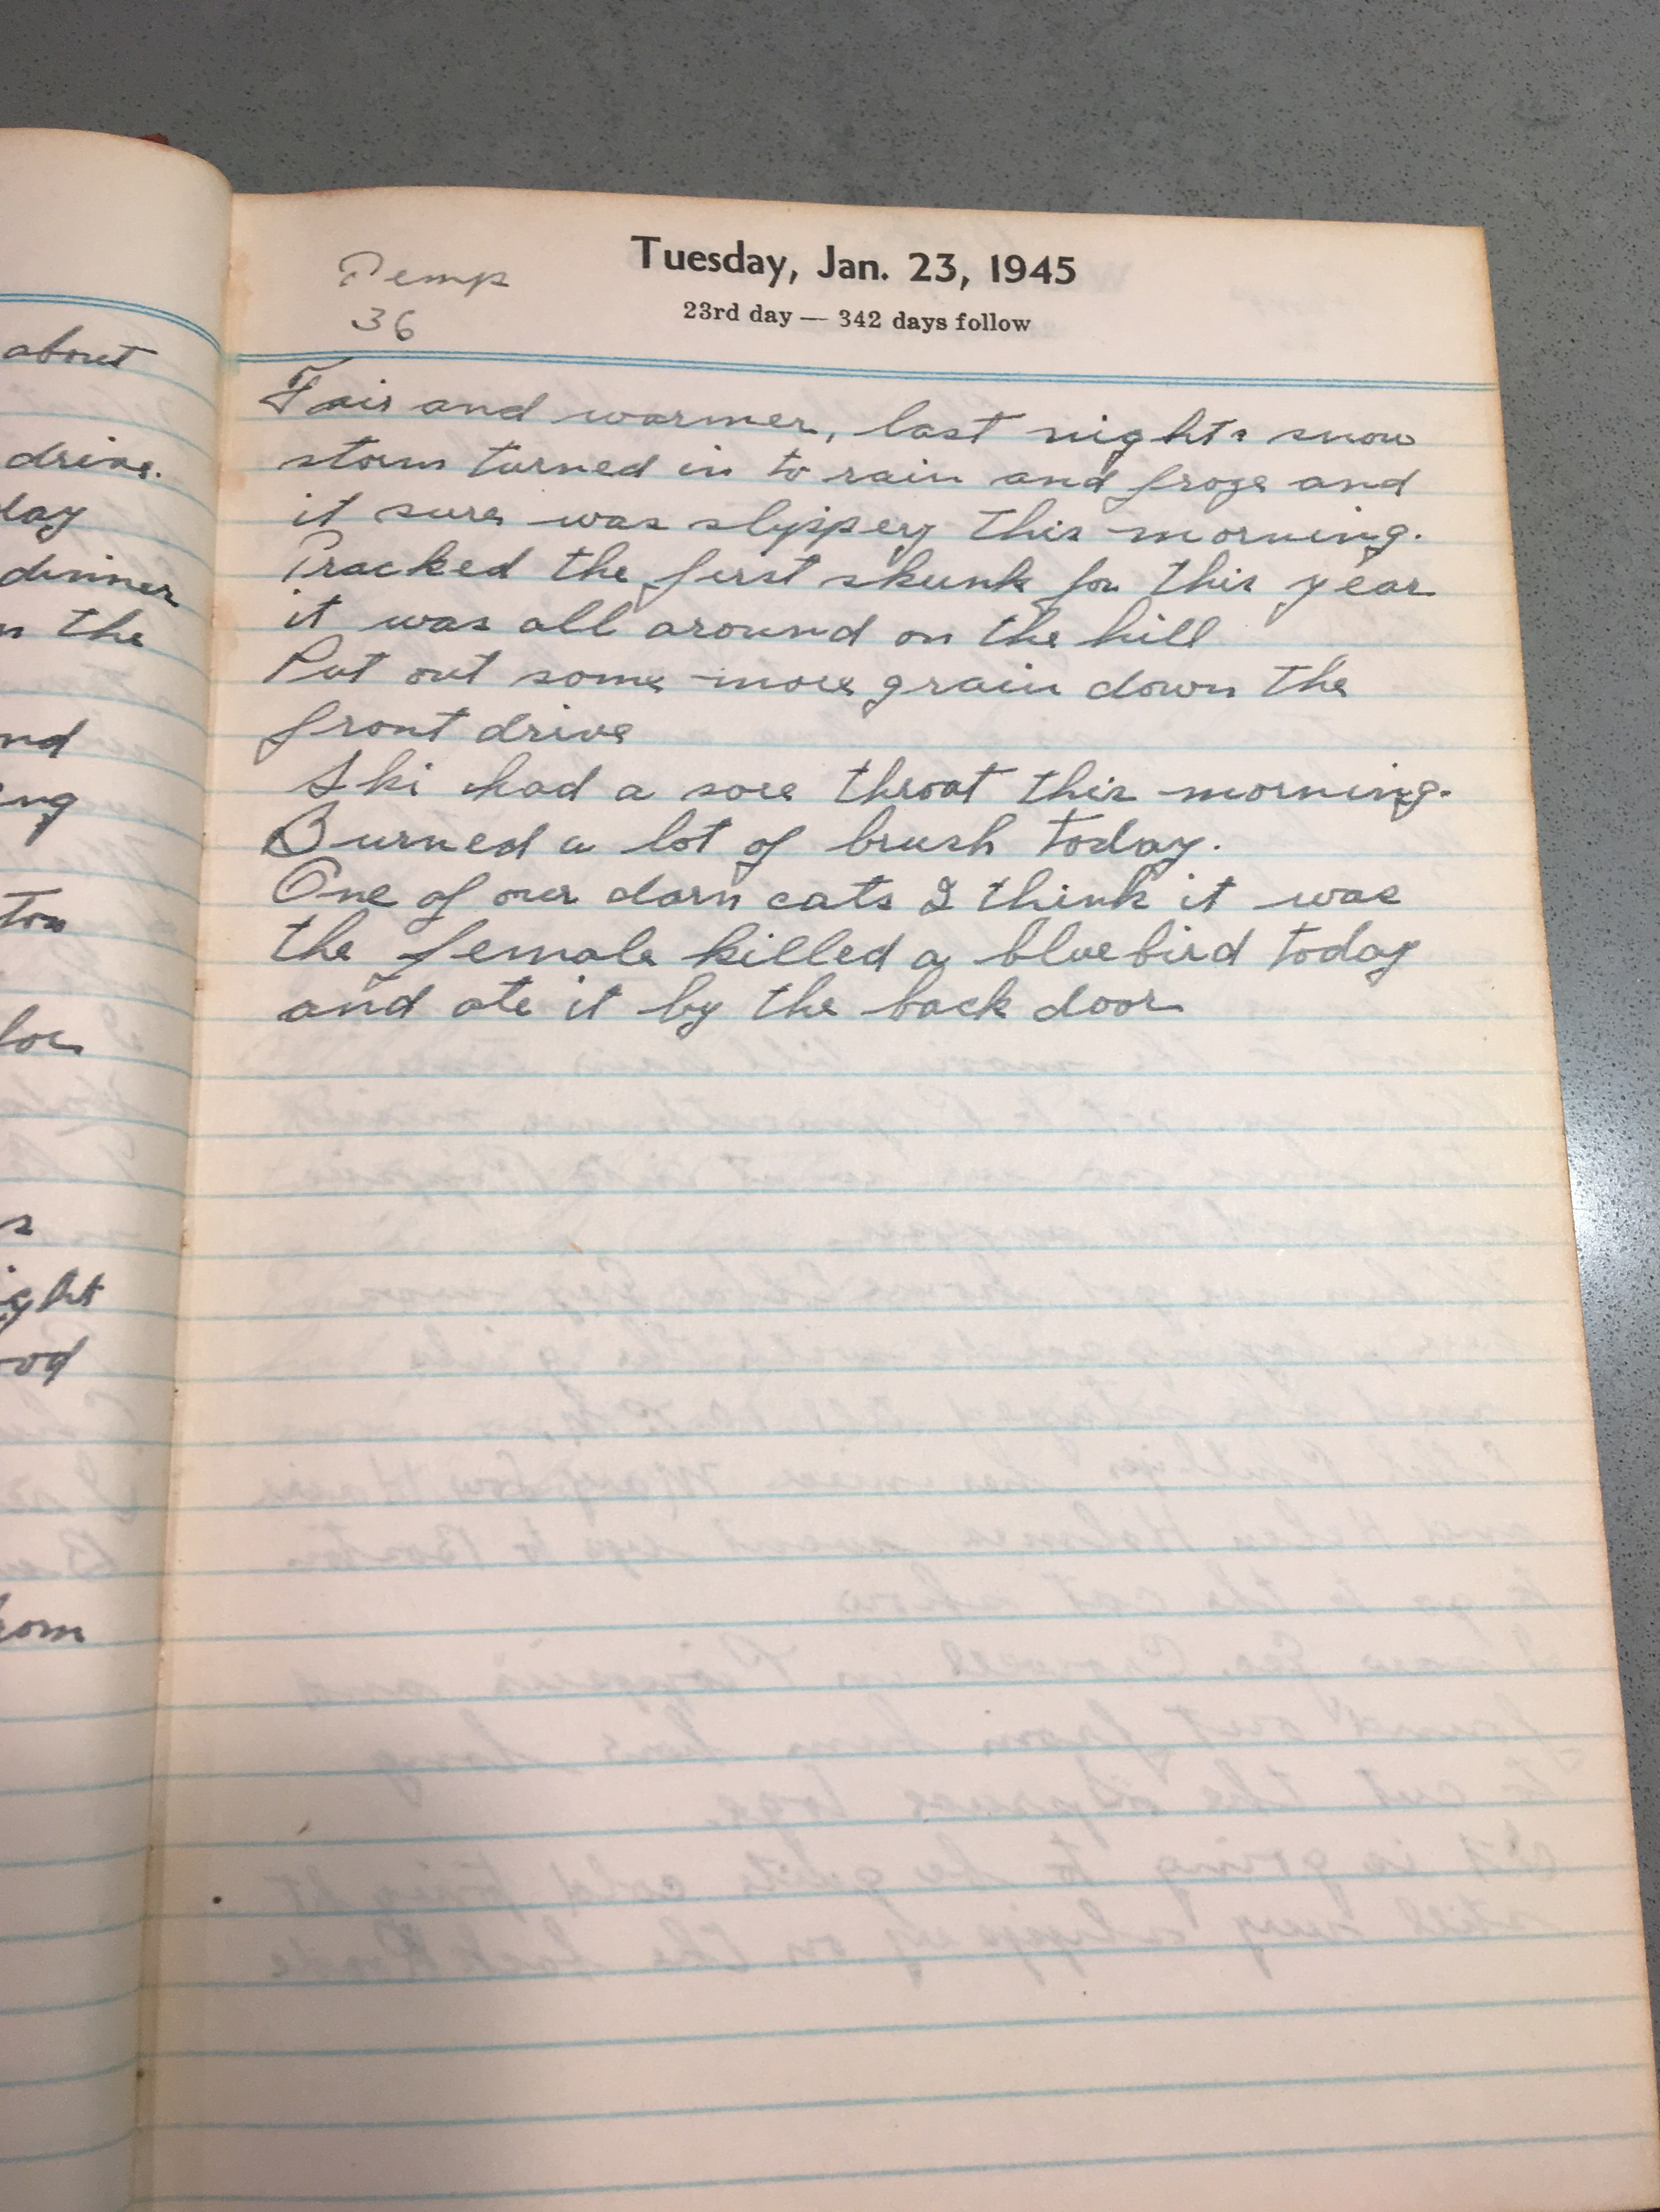 about
drive.
day
dinner
the
ight
Tuesday, Jan. 23, 1945
23rd day — 342 days follow
Temp
36
Fair and warmer, last nights snow
storm turned in to rain and froze and
it sure was slyppery this morning.
Tracked the first skunk for this year
it was all around on the hill
Put out some more grain down the
front drive
Ski had a sore throat this morning.
Burned a lot of brush today.
One of our darn cats I think it was
the female killed a bluebird today
and ate it by the back door